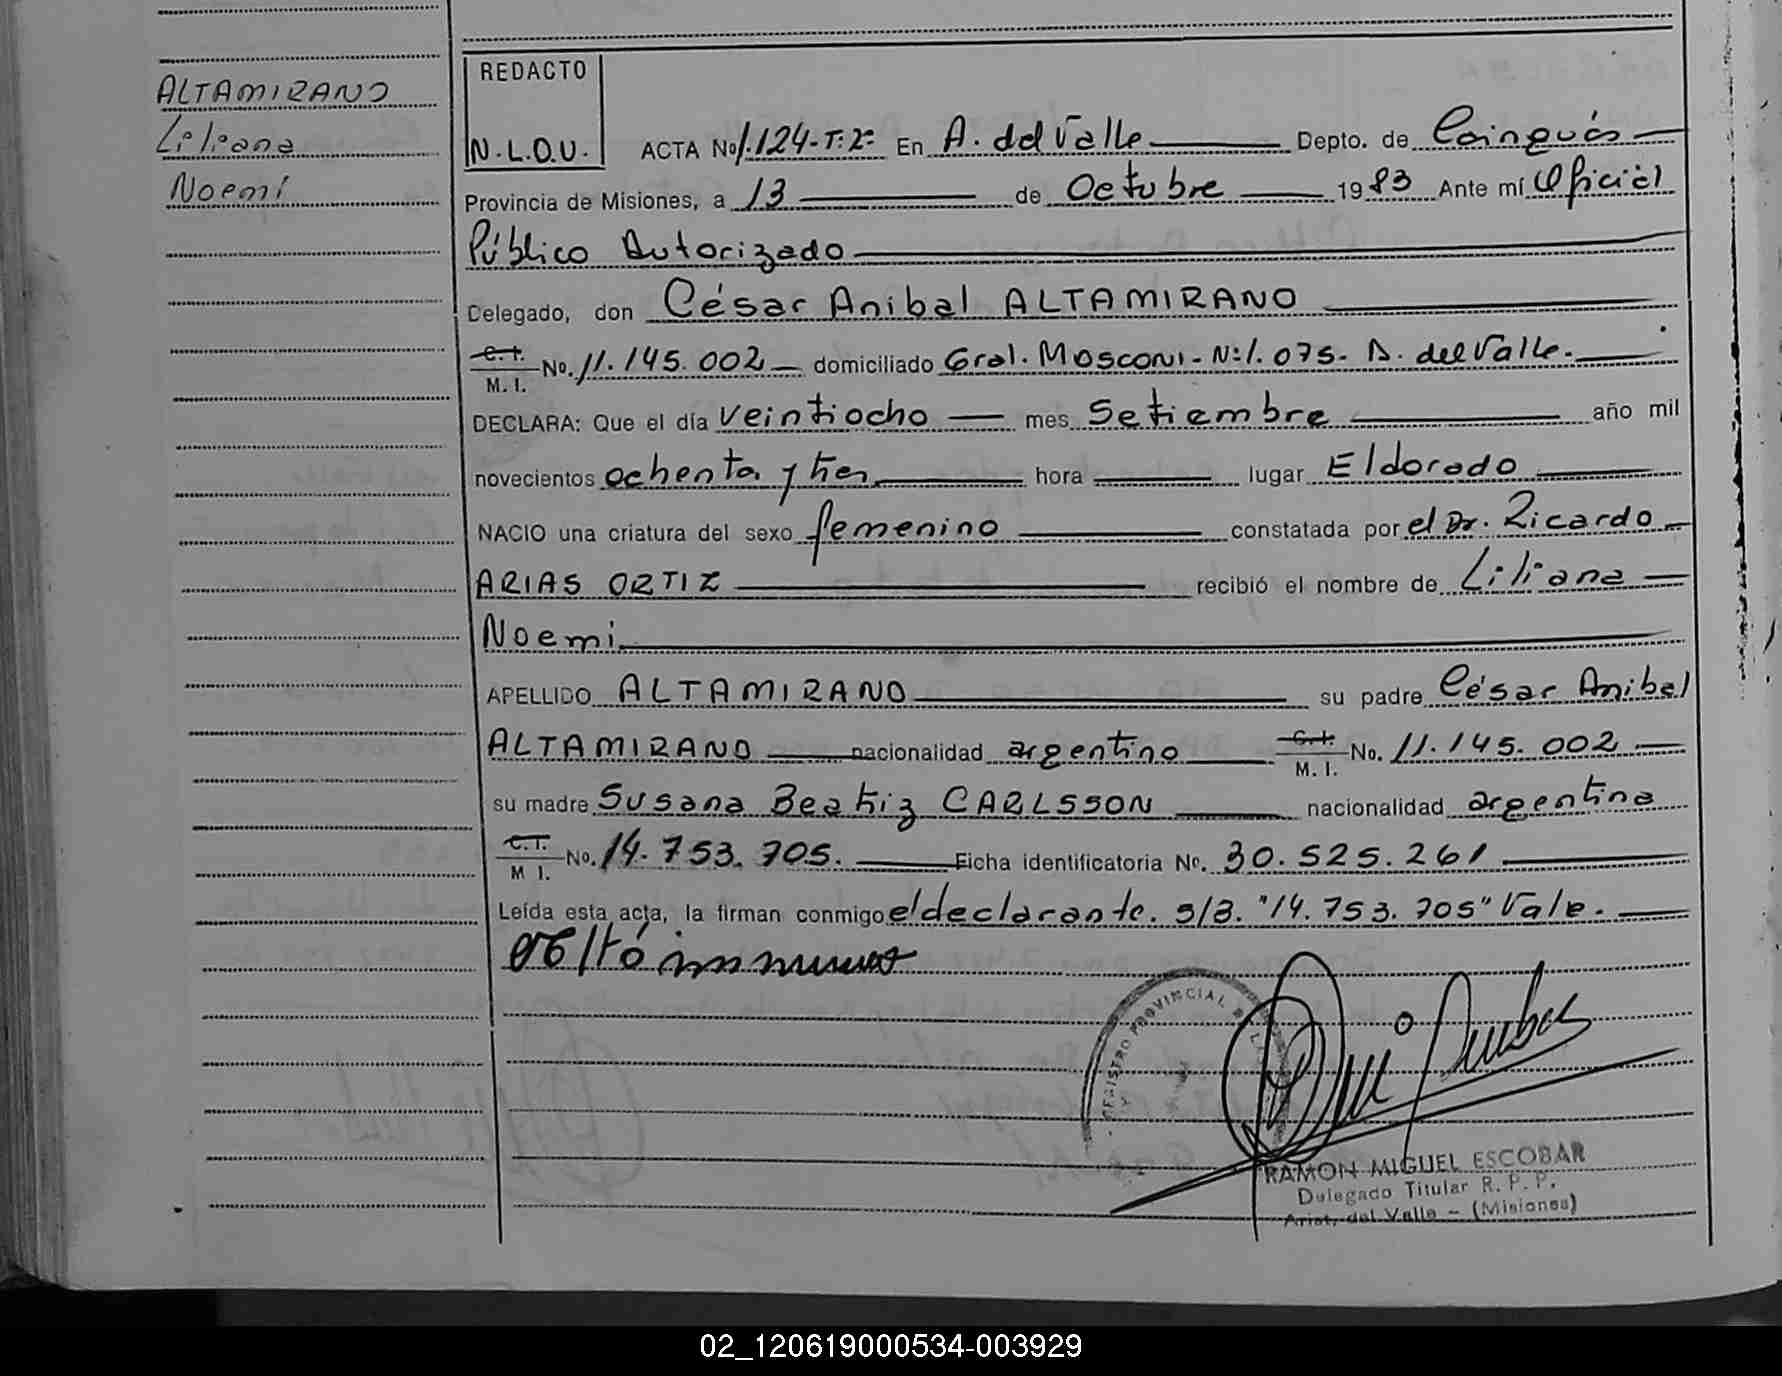 ALTAMIRANO
Liliana
Noemí
REDACTO
N.L.O.U.
ACTA No 1.124-T:2º En A. del Valle Depto. de Cainguás
Provincia de Misiones, a 13 de Octubre 1983 Ante mí Oficial
Público Autorizado
Delegado, don César Anibal ALTAMIRANO
C.I. M. I. No. 11.145.002 domiciliado Gral. Mosconi - Nº 1.075 - A. del Valle.
DECLARA: Que el día veintiocho mes Setiembre año mil
novecientos ochenta y tres hora lugar Eldorado
NACIO una criatura del sexo femenino constatada por el Dr. Ricardo
ARIAS ORTIZ recibió el nombre de Liliana
Noemi
APELLIDO ALTAMIRANO su padre César Anibal
ALTAMIRANO nacionalidad argentino C.I. M. I. No. 11.145.002
su madre Susana Beatriz CARLSSON nacionalidad argentina
C.I. M I. No. 14.753.705. Ficha identificatoria No. 30.525.261
Leída esta acta, la firman conmigo el declarante. S/B. "14.753.705" Vale.
REGISTRO PROVINCIAL
RAMON MIGUEL ESCOBAR
Delegado Titular R. P. P.
Arist. del Valle - (Misiones)
02_120619000534-003929